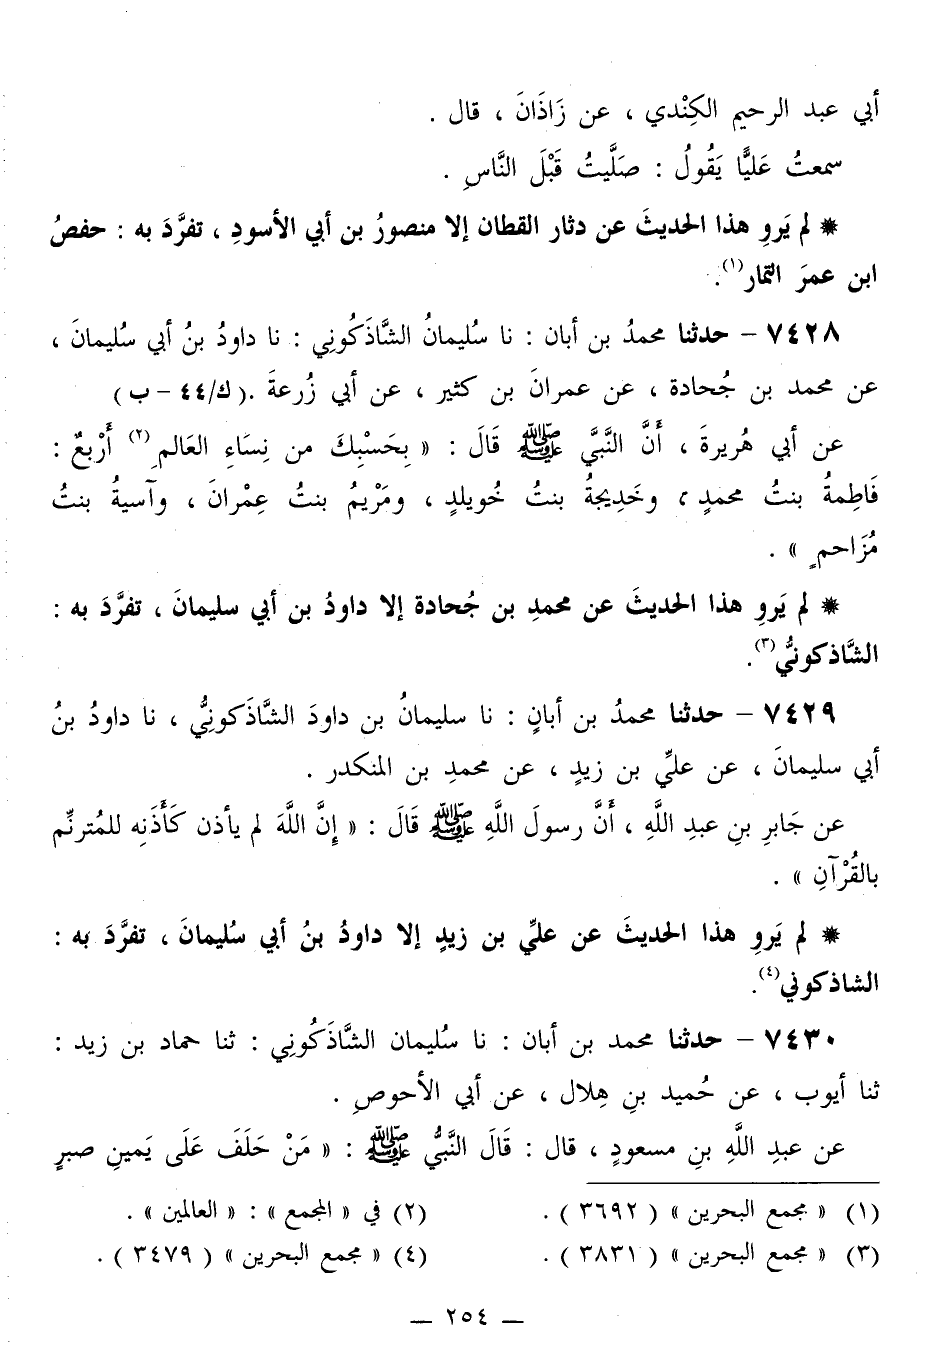 أبي عبد الرحيم الكِنْدي ، عن زَاذَانَ ، قال .
سمعتُ عَليًّا يَقُولُ : صَلَّيتُ قَبْلَ النَّاسِ .
* لم يَروِ هذا الحديثَ عن دثار القطان إلا منصورُ بن أبي الأسودِ ، تفرَّدَ به : حفصُ
ابن عمرَ التمار(١).
٧٤٢٨ – حدثنا محمدُ بن أبان : نا سُليمانُ الشَّاذَكُوني : نا داودُ بنُ أبي سليمانَ ،
عن محمد بن جُحادة ، عن عمرانَ بن كثير ، عن أبي زُرعةَ .( ك/٤٤ – ب )
عن أبي هُريرةَ ، أَنَّ النَّبيَّ ﷺ قَالَ : « بِحَسْبِكَ من نِسَاءِ العَالمِ(٢) أَرْبعٌ :
فَاطِمةُ بنتُ محمدٍ ، وخَدِيجةُ بنتُ خُويلدٍ ، ومَرْيمُ بنتُ عِمْرانَ ، وآسيةُ بنتُ
مُزَاحمٍ » .
* لم يَروِ هذا الحديثَ عن محمدِ بن جُحادة إلا داودُ بن أبي سليمانَ ، تفرَّدَ به :
الشَّاذكونيُّ(٣).
٧٤٢٩ – حدثنا محمدُ بن أبانٍ : نا سليمانُ بن داودَ الشَّاذَكونِيُّ ، نا داودُ بنُ
أبي سليمانَ ، عن عليِّ بن زيدٍ ، عن محمدِ بن المنكدر .
عن جَابرِ بنِ عبدِ اللَّهِ ، أَنَّ رسولَ اللَّهِ ﷺ قَالَ : « إِنَّ اللَّهَ لم يأذن كَأَذَنِه للمُترنِّم
بالقُرْآنِ » .
* لم يَروِ هذا الحديثَ عن عليِّ بن زيدٍ إلا داودُ بنُ أبي سُليمانَ ، تفرَّدَ به :
الشاذكوني(٤).
٧٤٣٠ – حدثنا محمد بن أبان : نا سُليمان الشَّاذَكُونِي : ثنا حماد بن زيد :
ثنا أيوب ، عن حُميد بنِ هِلال ، عن أبي الأحوصِ .
عن عبدِ اللَّهِ بنِ مسعودٍ ، قال : قَالَ النَّبيُّ ﷺ : « مَنْ حَلَفَ عَلَى يَمينِ صبرٍ
(١) « مجمع البحرين » ( ٣٦٩٢ ) . (٢) في « المجمع » : « العالمين » .
(٣) « مجمع البحرين » ( ٣٨٣١ ) . (٤) « مجمع البحرين » ( ٣٤٧٩ ) .
— ٢٥٤ —